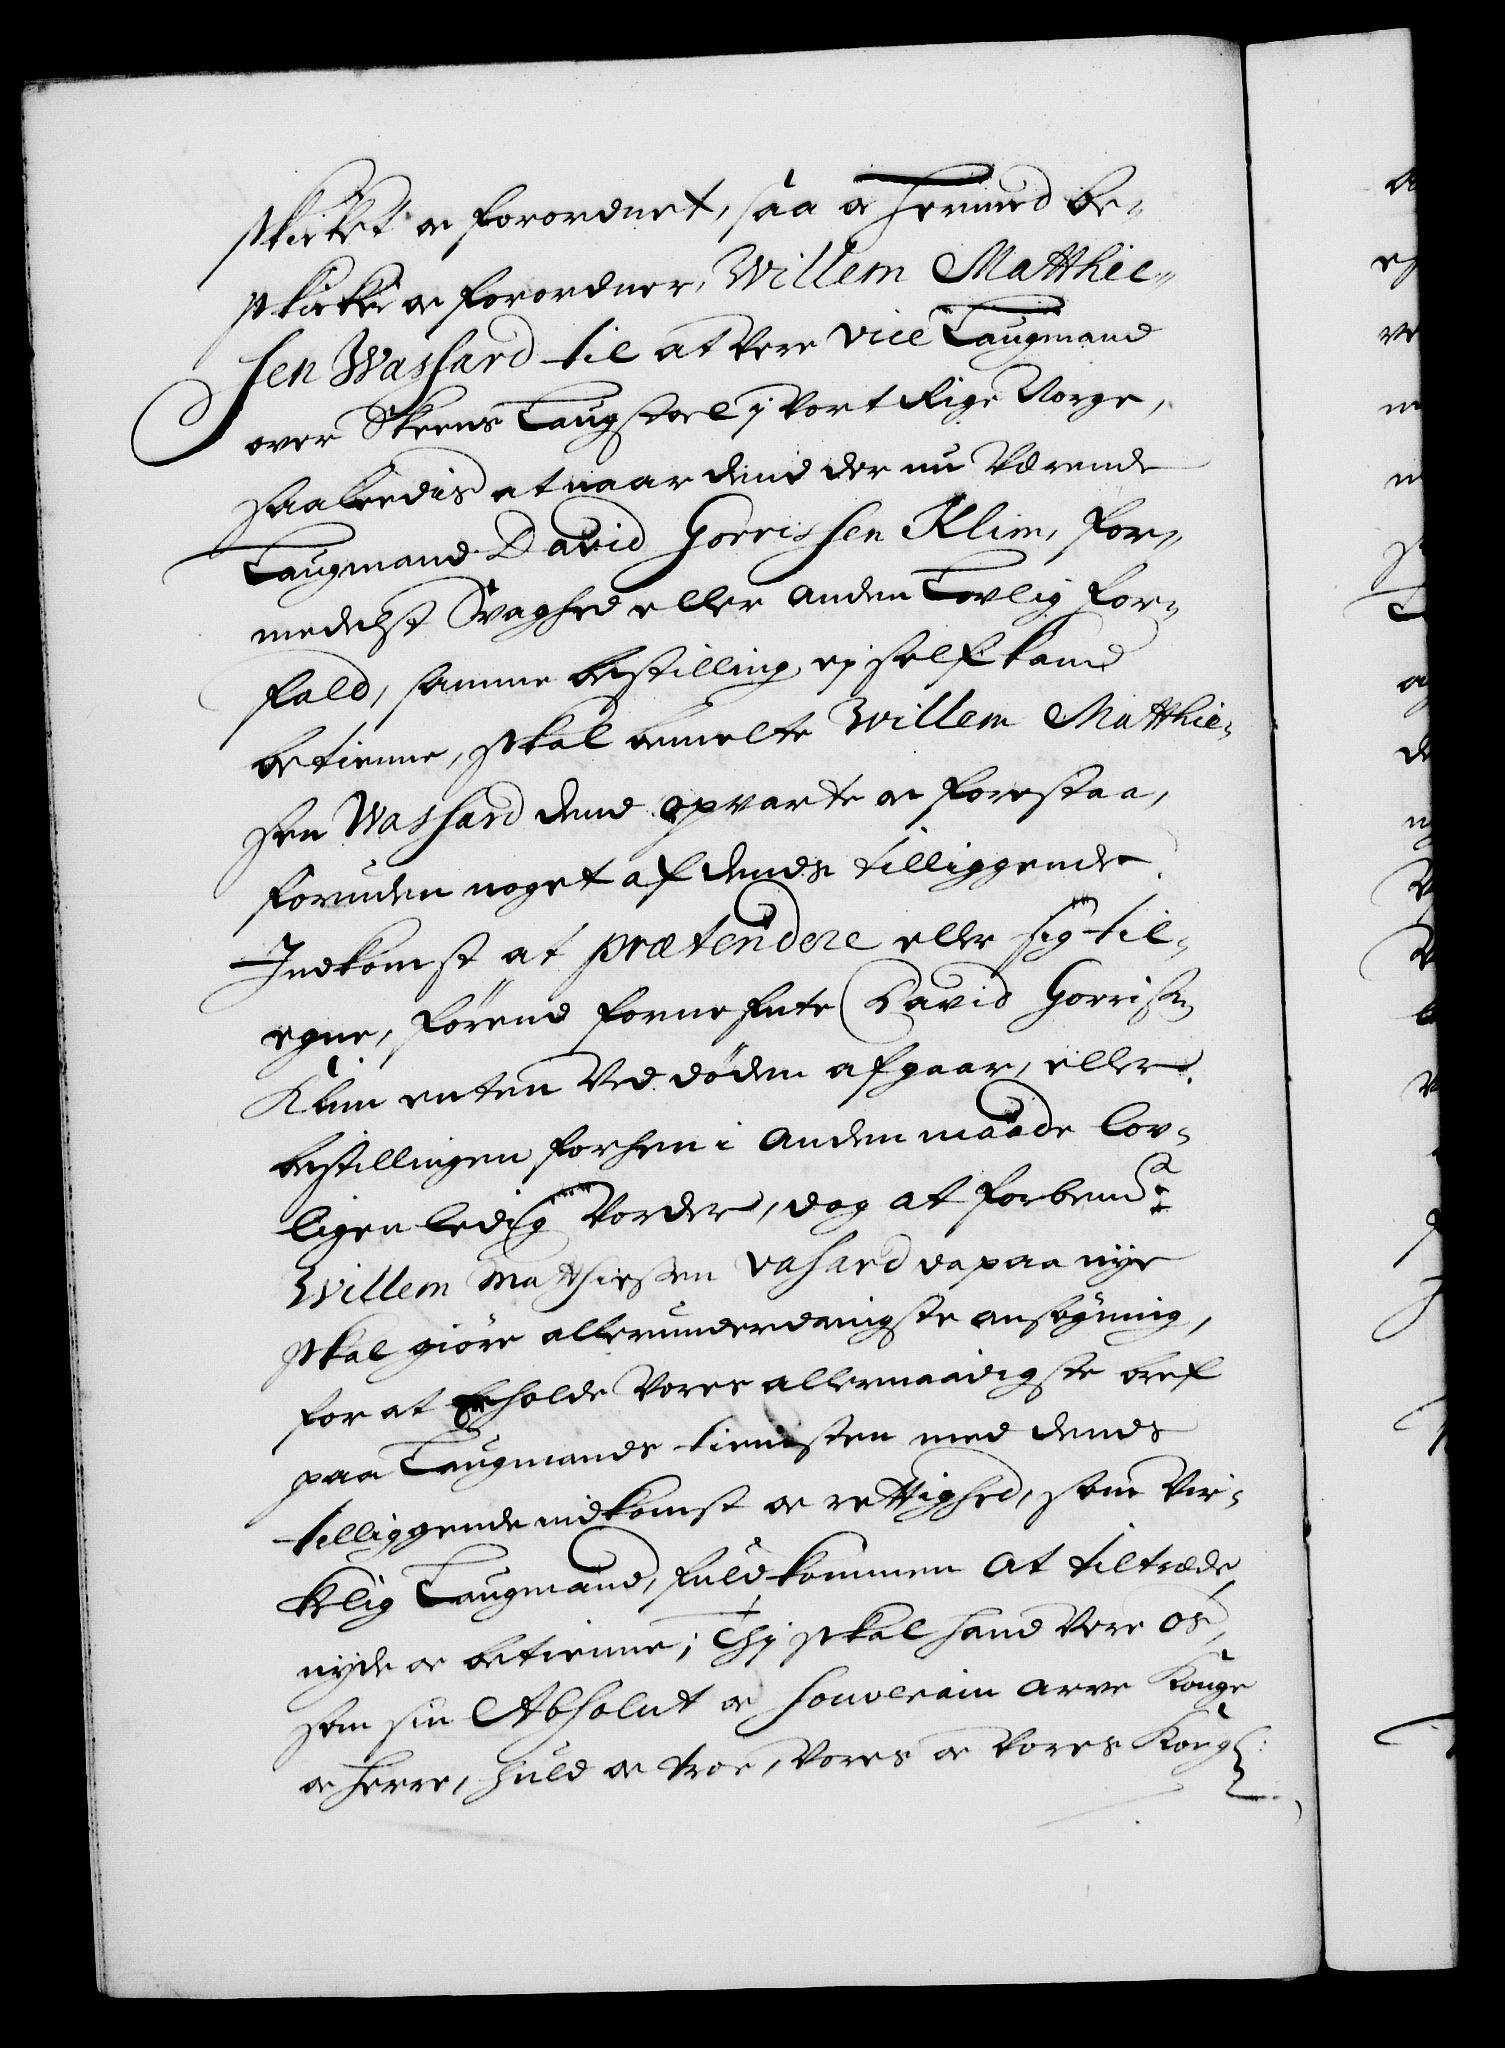 skicket oc forordnet, saa oc hermed be-
skicke oc forordner, Willem Matthie-
sen Wassard til at Vere vice Laugmand
over Skeens Laugstoel j Vort Rige Norge,
saaleedis at naar dend der nu Værende
Laugmand David Gorrissen Klim, for-
medelst Svaghed eller anden Lovlig for-
fald, samme bestilling ej self kand
betienne, skal bemelte Willem Matthie-
sen Wassard dend opvarte oc forestaa,
foruden noget af dends tilliggende
Indkomst at prætendere eller sig til-
egne, førend fornefnte David Gorrisen
Klim enten Ved døden afgaar, eller
bestillingen forhen i anden maade lov-
ligen ledig Vorder, dog at forbemte
Willem Matthiessen Vasard da paa nye
skal giøre allerunderdanigste ansøgning,
for at Erholde Vores allernaadigste bref
paa Laugmands tiennisten med dends
tilliggende indkomst oc rettighed, som Vir-
kelig Laugmand, fuldkommen at tiltræde
nyde oc betienne; Thj skal hand Vere os,
som sin Absolut oc souverain arve Konge
oc Herre, huld oc troe, Vores oc Vores Kong: